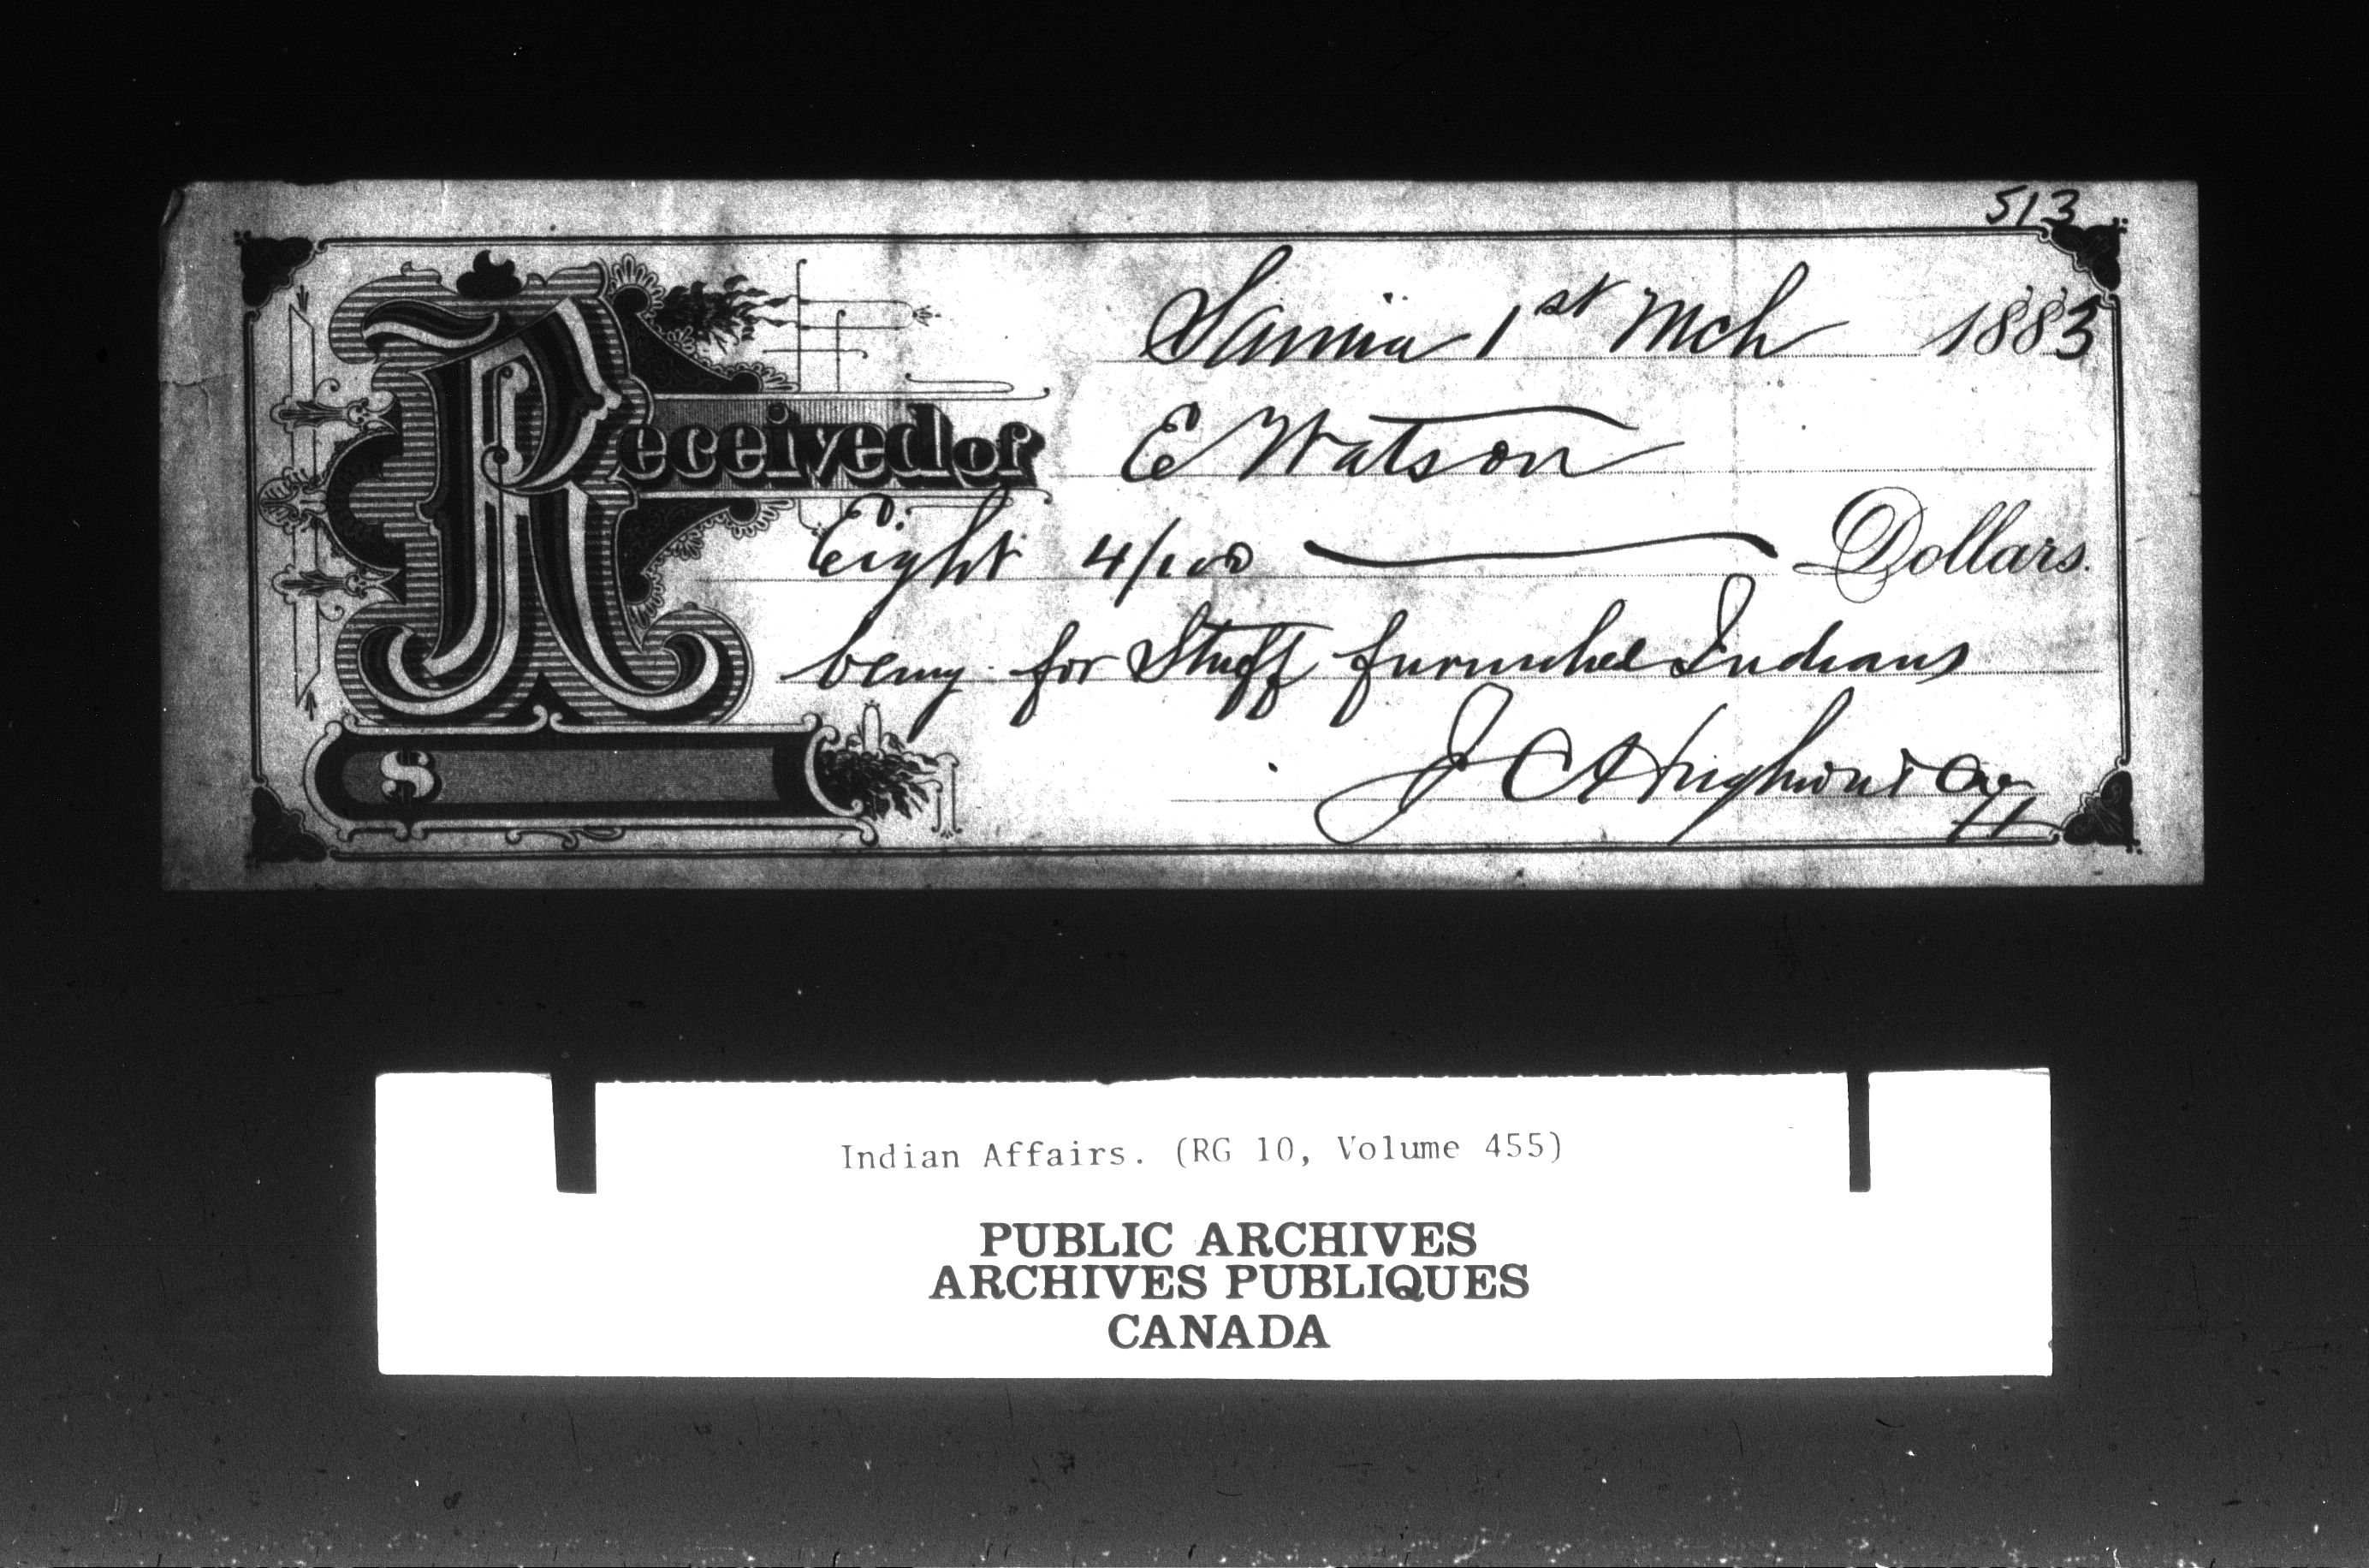 513
Sarnia 1st Mch 1883
Received of E Watson
Eight 4/100 Dollars.
being for Stuff furnished Indians
J C
$
Indian Affairs. (RG 10, Volume 455)
PUBLIC ARCHIVES
ARCHIVES PUBLIQUES
CANADA